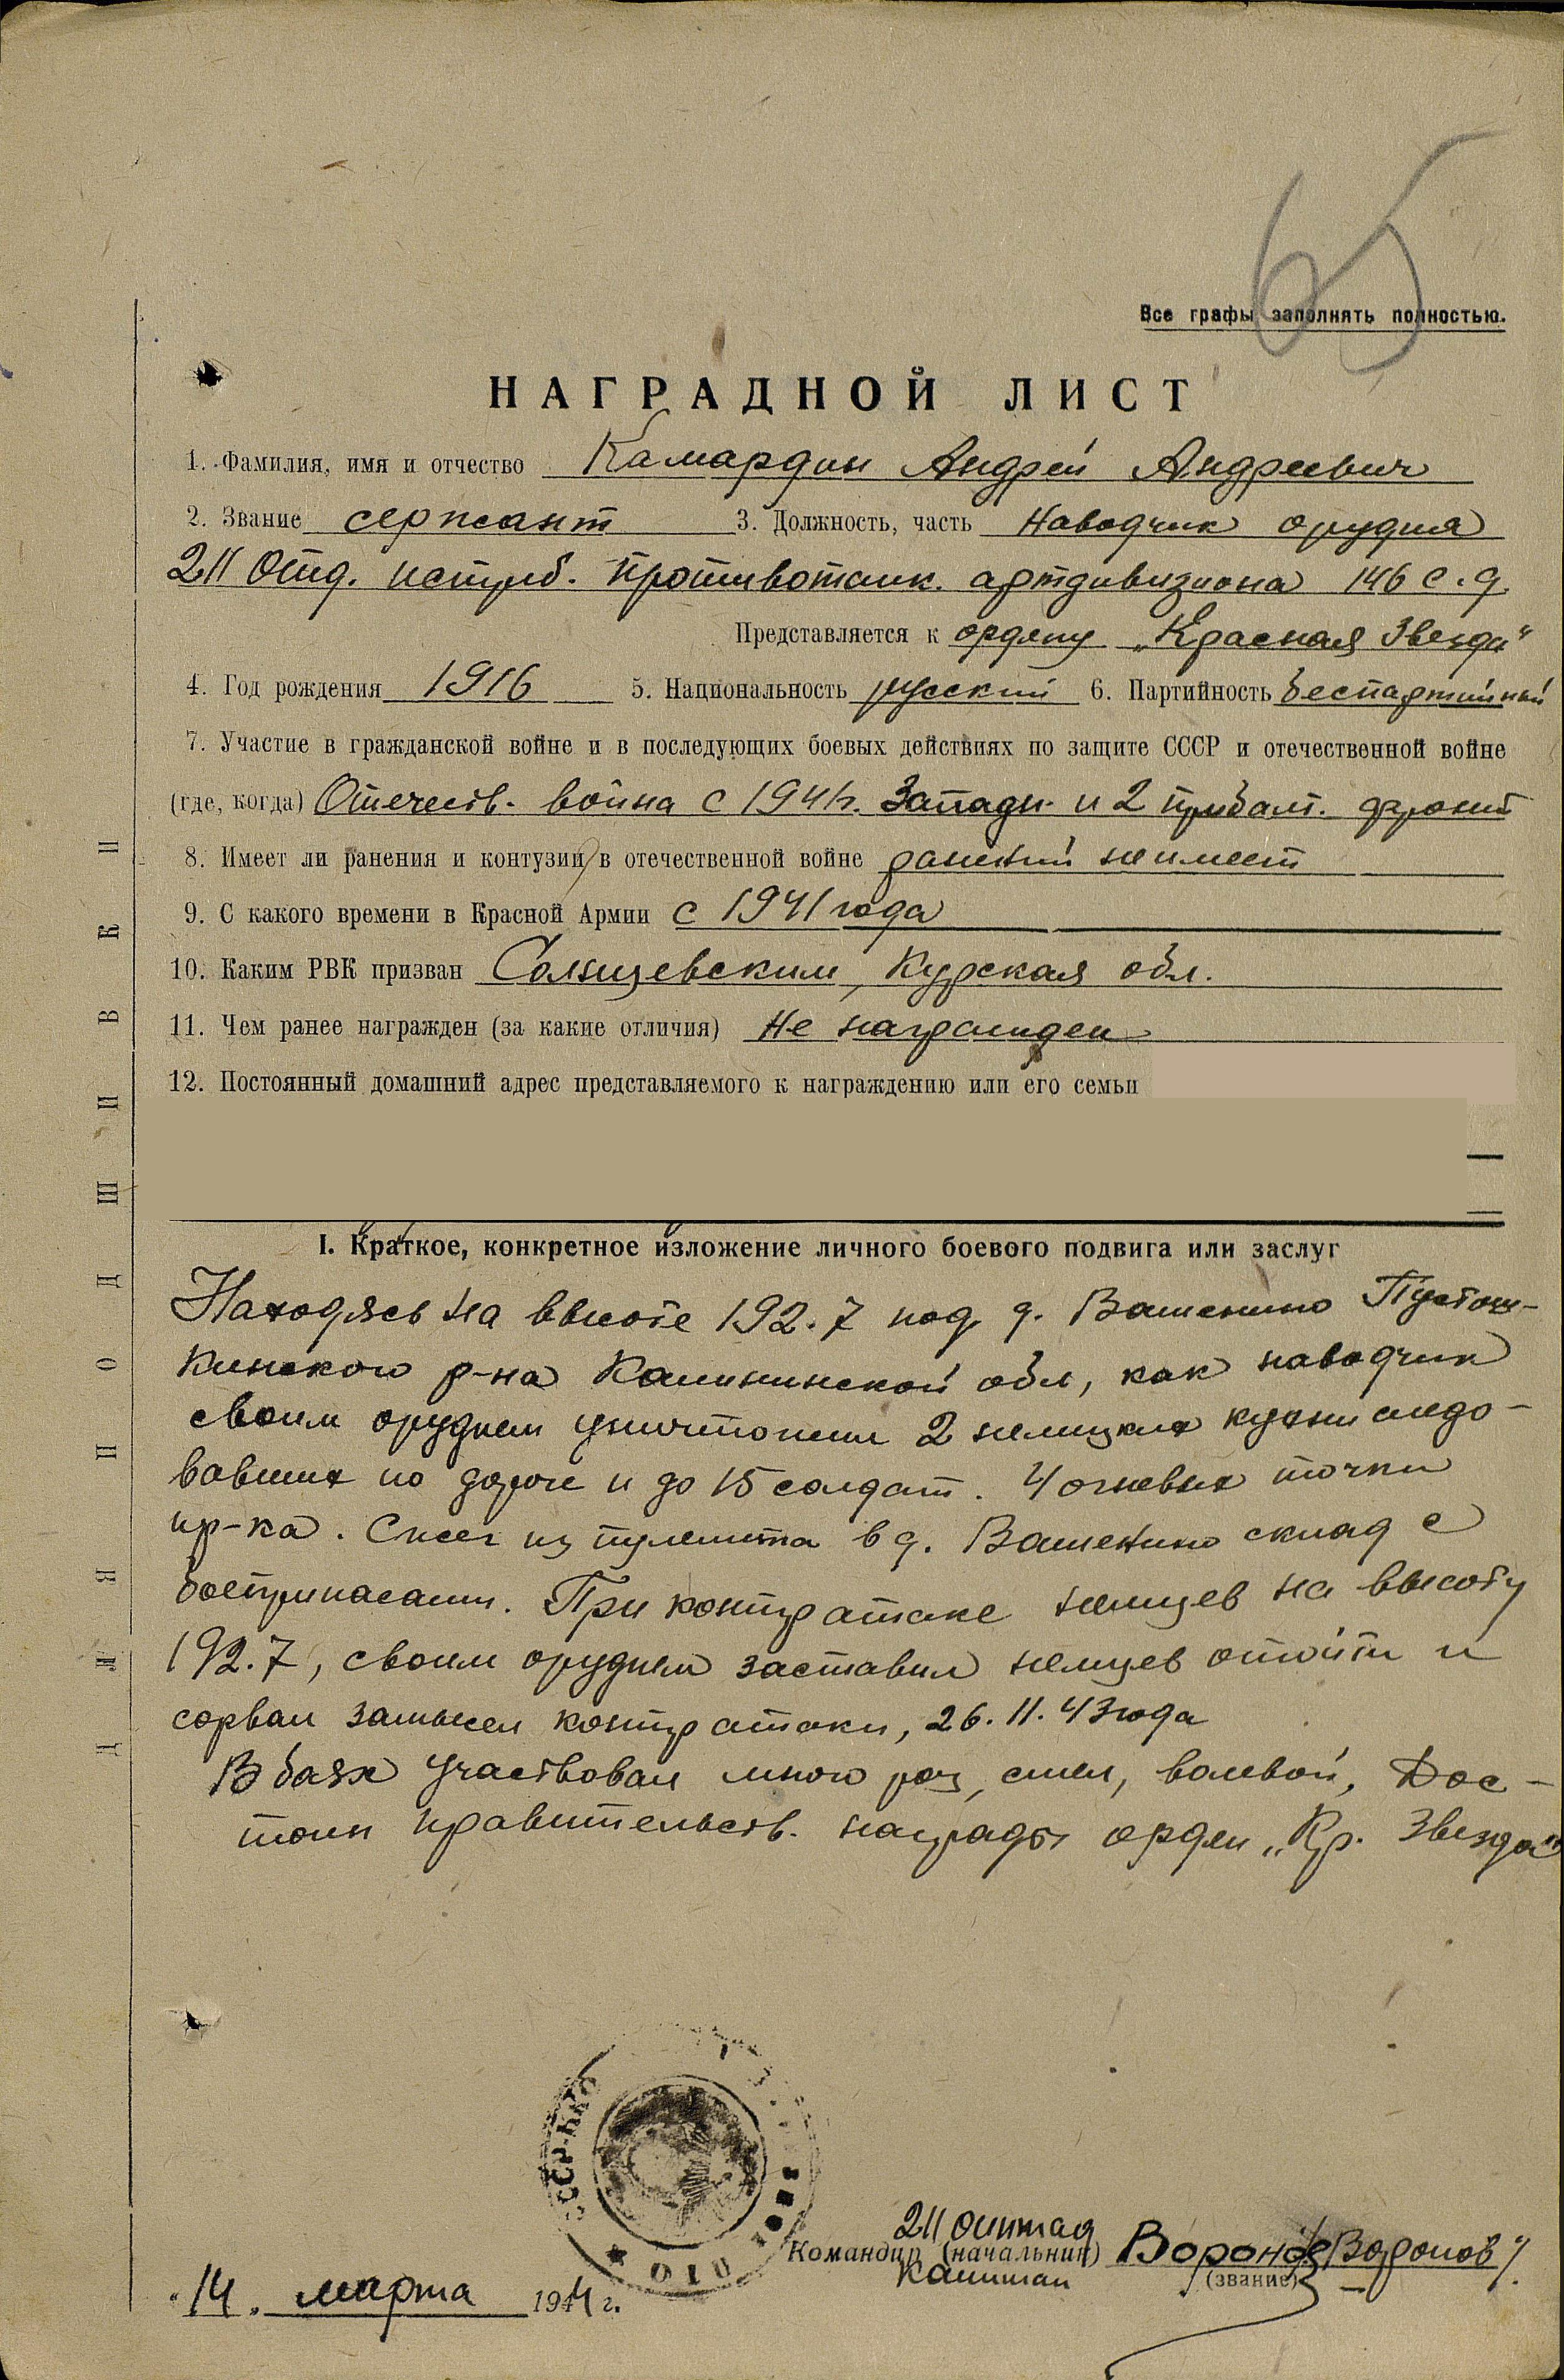 65
Все графы заполнять полностью.
НАГРАДНОЙ ЛИСТ
1. Фамилия, имя и отчество Камардин Андрей Андреевич
2. Звание сержант 3. Должность, часть Наводчик орудия
211 Отд. истреб. противотанк. артдивизиона 146 с.д.
Представляется к ордену „Красная Звезда“
4. Год рождения 1916 5. Национальность русский 6. Партийность беспартийный
7. Участие в гражданской войне и в последующих боевых действиях по защите СССР и отечественной войне
(где, когда) Отечеств. война с 1941г. Западн. и 2 прибалт. фронт
8. Имеет ли ранения и контузии в отечественной войне ранений не имеет
9. С какого времени в Красной Армии с 1941 года
10. Каким РВК призван Солнцевским, Курская обл.
11. Чем ранее награжден (за какие отличия) Не награжден
12. Постоянный домашний адрес представляемого к награждению или его семьи
I. Краткое, конкретное изложение личного боевого подвига или заслуг
Находясь на высоте 192.7 под д. Вашенино Пустош-
кинского р-на Калининской обл, как наводчик
своим орудием уничтожил 2 немецких кухни следо-
вавших по дороге и до 15 солдат. 4 огневых точки
пр-ка. Сжег из пулемета в д. Вашенино склад с
боеприпасами. При контратаке немцев на высоту
192.7, своим орудием заставил немцев отойти и
сорвал замысел контратаки, 26.11.43 года
В боях участвовал много раз, смел, волевой, Дос-
тоин правительств. награды орден „Кр. Звезда“
211 оиптад
Командир (начальник) Воронов /Воронов/
капитан (звание)
„14„ марта 1944 г.
ДЛЯ ПОДШИВКИ
СССР-НКО